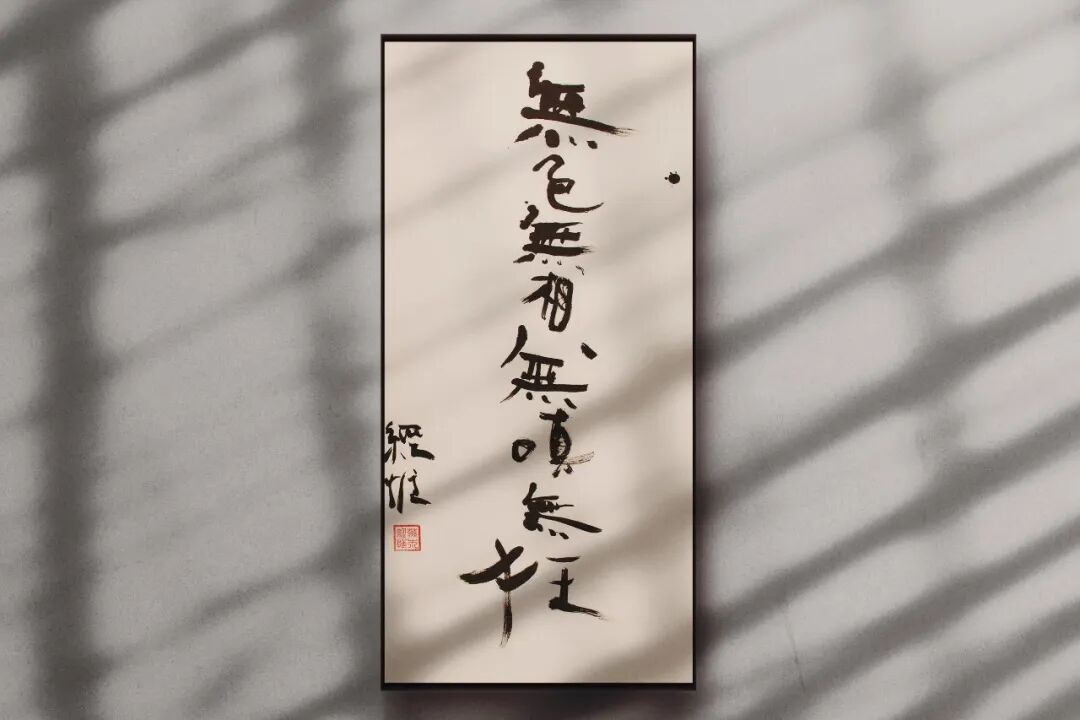 無色無相無嗔無狂